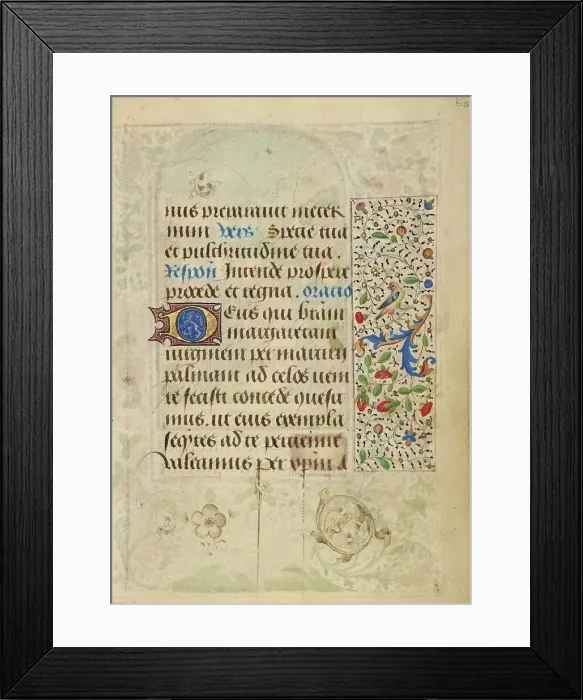 nus preparauit in eter
num Vers Specie tua
et pulchritudine tua.
Respon Intende prospere
procede et regna. oratio
Deus qui beatam
margaretam
uirginem per martirii
palmam ad celos ueni
re fecisti concede quesu
mus. ut eius exempla
seqtes ad te peruenire
valeamus per xpm d